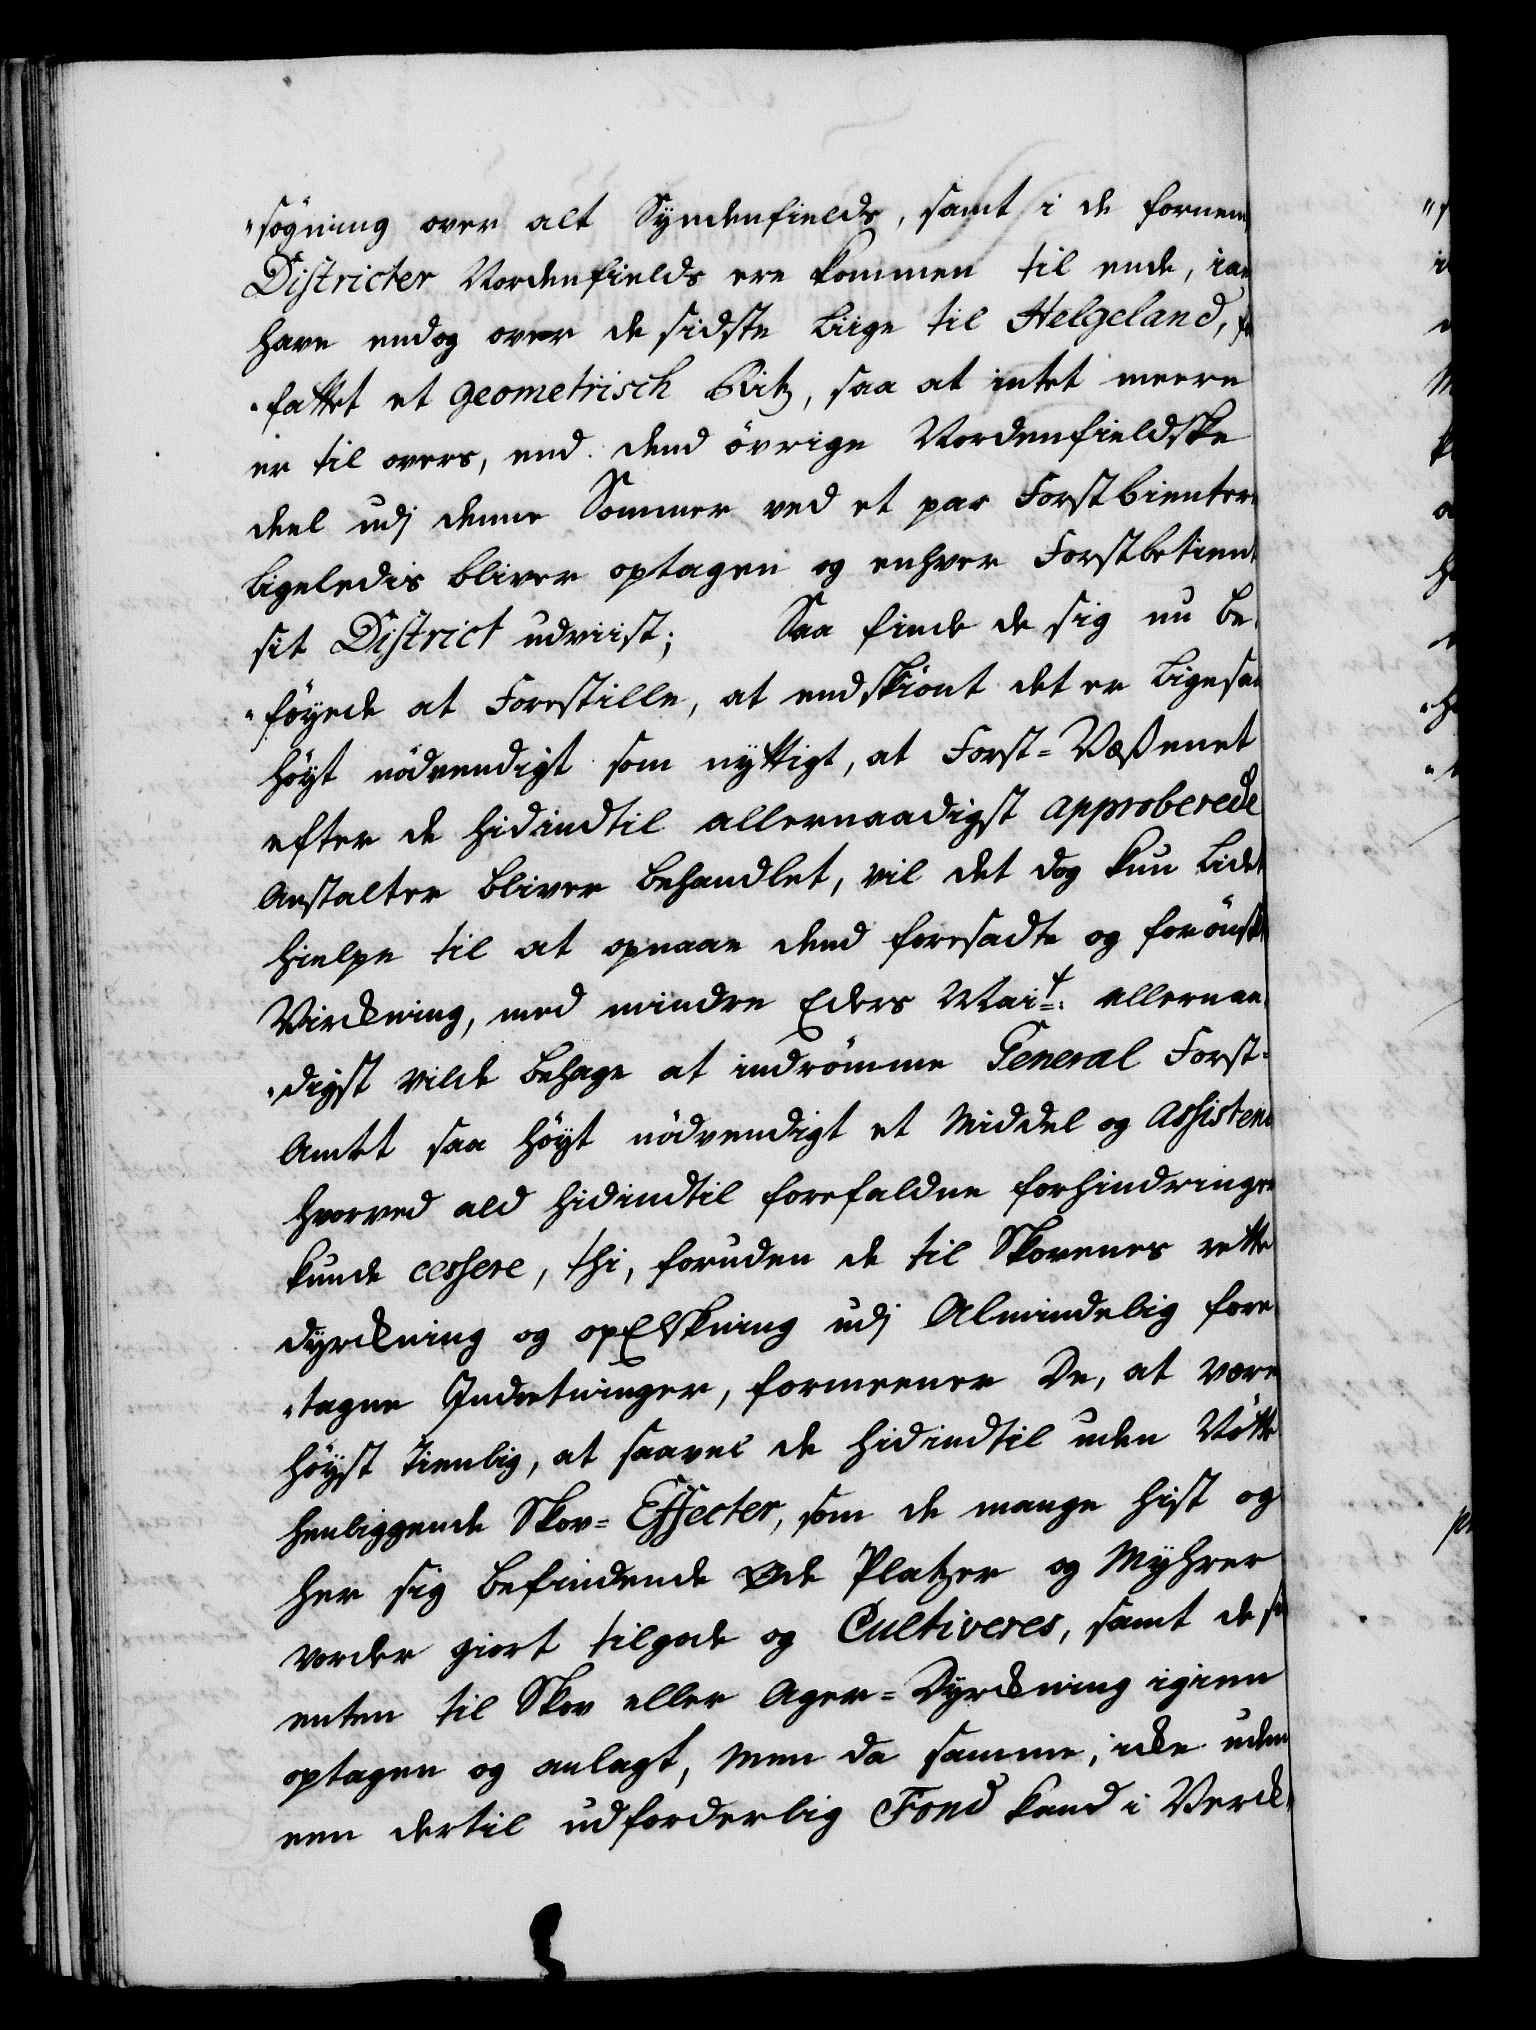 "søgning over alt Syndenfields, samt i de fornem
Districter Nordenfields ere kommen til ende, iae
have endog over de sidste liige til Helgeland,
"fattet et geometrisch Ritz, saa at intet meere
er til overs, end dend øvrige Nordenfieldske
deel udj denne Sommer ved et par Forstbienter
ligeledis bliver optagen og enhver Forstbetient
sit District udviist; Saa finde de sig nu be,
"føyede at Forestille, at endskiønt det er ligesaa
høyt nødvendigt som nyttigt, at Forst=Væßenet
efter de hidindtil allernaadigst approberede
Anstalter bliver behandlet, vil det dog kun lidet
hielpe til at opnaae dend foresadte og forønsk
Virckning, med mindre Eders Mait: allernaa,
"digst vilde behage at indrømme General Forst=
Amtet saa høyt nødvendigt et Middel og Assistence
hvorved ald hidindtil forefaldne forhindringer
kunde cessere, thi, foruden de til Skovenes rette
dyrckning og opElskning udj Almindelig fore
"tagne Indretninger, formeener De, at være
høyst tienlig, at saavel de hidindtil uden Nøtte
henliggende Skov=Effecter, som de mange hist og
her sig befindende Øde Platzer og Myhrer
vorder giort tilgode og Cultiveres, samt de
enten til Skov eller Ager=Dyrckning igien
optagen og anlagt, Men da samme, icke uden
een dertil udforderlig Fond kand i Verck,